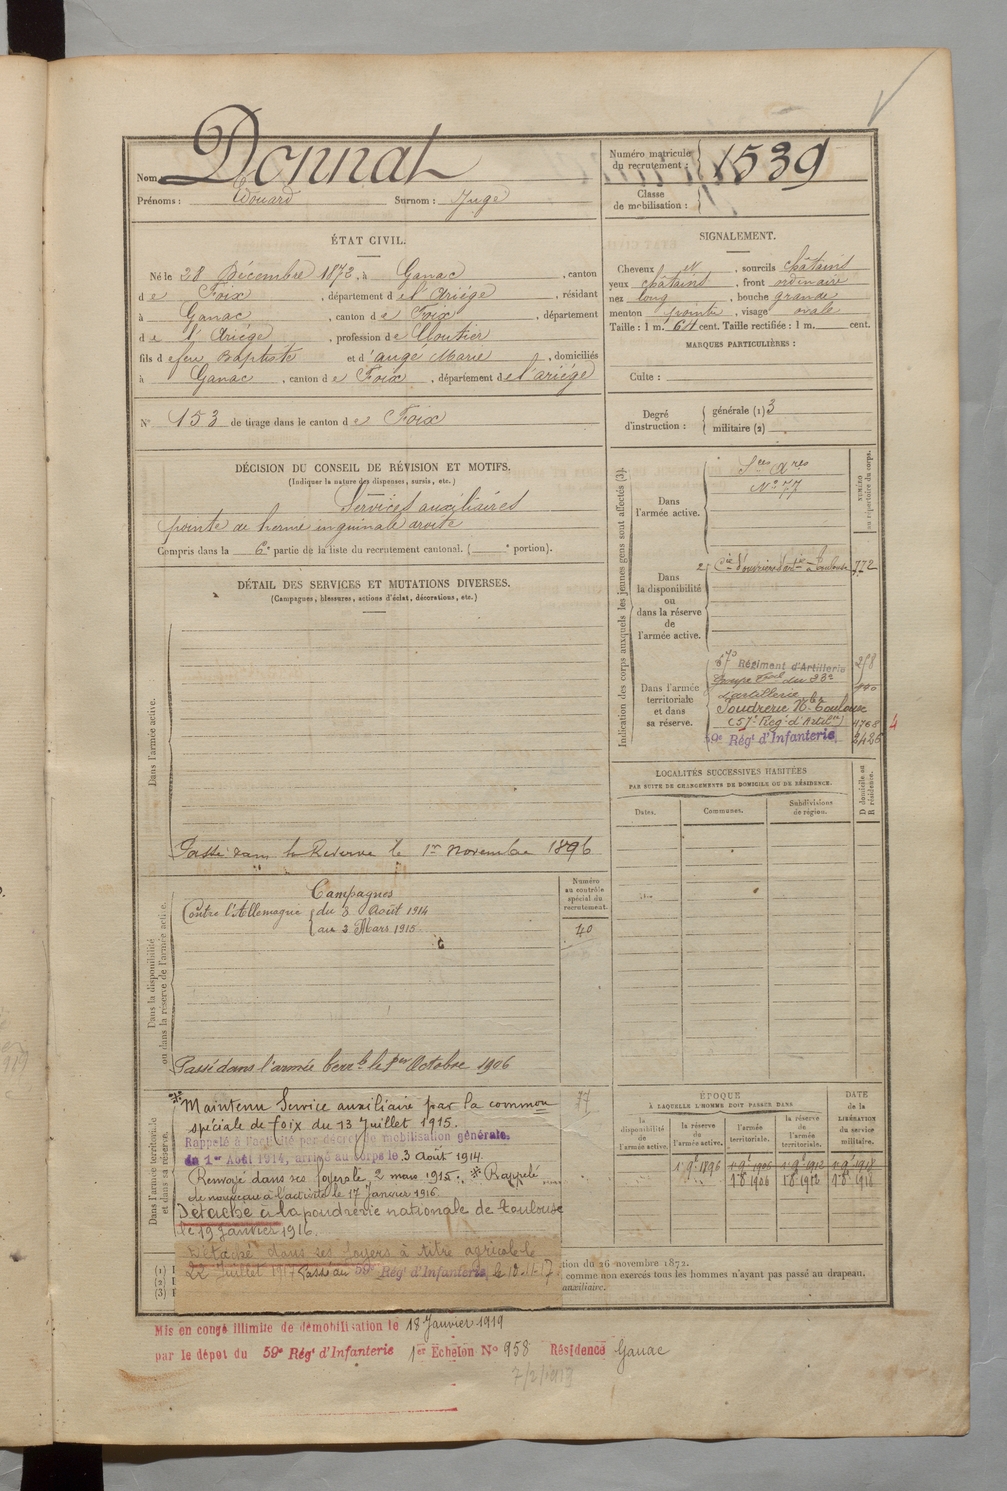 Nom : Donnat
Prénoms : Edouard Surnom : Juge
Numéro matricule
du recrutement : 1539
Classe
de mobilisation :
ÉTAT CIVIL.
Né le 28 Décembre 1872, à Ganac, canton
de Foix, département de l'Ariége, résidant
à Ganac, canton de Foix, département
de l'Ariége, profession de Cloutier
fils de feu Baptiste et d'auge Marie, domiciliés
à Ganac, canton de Foix, département de l'ariége
N° 153 de tirage dans le canton de Foix
SIGNALEMENT.
Cheveux N, sourcils châtains
yeux châtains, front ordinaire
nez long, bouche grande
menton pointu, visage ovale
Taille : 1 m. 64 cent. Taille rectifiée : 1 m. cent.
MARQUES PARTICULIÈRES :
Culte :
Degré
d'instruction :
générale (1) 3
militaire (2)
DÉCISION DU CONSEIL DE RÉVISION ET MOTIFS.
(Indiquer la nature des dispenses, sursis, etc.)
Services auxiliaires
pointe de hernie inguinale droite
Compris dans la 6e partie de la liste du recrutement cantonal. ( e portion).
DÉTAIL DES SERVICES ET MUTATIONS DIVERSES.
(Campagnes, blessures, actions d'éclat, décorations, etc.)
Dans l'armée active.
Passé dans la Réserve le 1er novembre 1896
Dans la disponibilité
ou dans la réserve de l'armée active.
Campagnes
Contre l'Allemagne du 3 Août 1914
au 2 Mars 1915
Numéro
au contrôle
spécial du
recrutement.
40
Passé dans l'armée terrle le 1er Octobre 1906
77
Dans l'armée territoriale
et dans sa réserve.
Maintenu Service auxiliaire par la common
spéciale de foix du 13 Juillet 1915.
Rappelé à l'activité par décret de mobilisation générale
du 1er Août 1914, arrivé au corps le 3 Août 1914.
Renvoyé dans ses foyers le 2 mars 1915. Rappelé
de nouveau à l'activité le 17 Janvier 1916.
Détaché à la poudrerie nationale de toulouse
le 19 Janvier 1916.
Détaché dans ses foyers à titre agricole le
22 Juillet 1917 Passé au 59e Régt d'Infanterie, le 10-11-17
Indication des corps auxquels les jeunes gens sont affectés (3).
NUMÉRO
au répertoire du corps.
Dans
l'armée active.
Sces Ares
N° 77
Dans
la disponibilité
ou
dans la réserve
de
l'armée active.
2e Cie d'ouvriers d'artie à Toulouse 772
Dans l'armée
territoriale
et dans
sa réserve.
Régiment d'Artillerie 258
Groupe Terral du 23e
d'artillerie
Poudrerie Nle Toulouse
(57e Régt d'Artille) 1768
59e Régt d'Infanterie
4
LOCALITÉS SUCCESSIVES HABITÉES
PAR SUITE DE CHANGEMENTS DE DOMICILE OU DE RÉSIDENCE.
Dates.
Communes.
Subdivisions
de région.
D domicile ou
R résidence.
ÉPOQUE
À LAQUELLE L'HOMME DOIT PASSER DANS
la
disponibilité
de
l'armée active.
la réserve
de
l'armée active.
l'armée
territoriale.
la réserve
de
l'armée
territoriale.
DATE
de la
LIBÉRATION
du service
militaire.
1 9 1896 1 9 1906 1 9 1912 1 9 1918
1 8 1906 1 8 1912 1 8 1918
tion du 26 novembre 1872.
comme non exercés tous les hommes n'ayant pas passé au drapeau.
auxiliaire.
(1)
(2)
(3)
Mis en congé illimité de démobilisation le 18 Janvier 1919
par le dépôt du 59e Régt d'Infanterie 1er Echelon N° 958 Résidence Ganac
7/2/1919